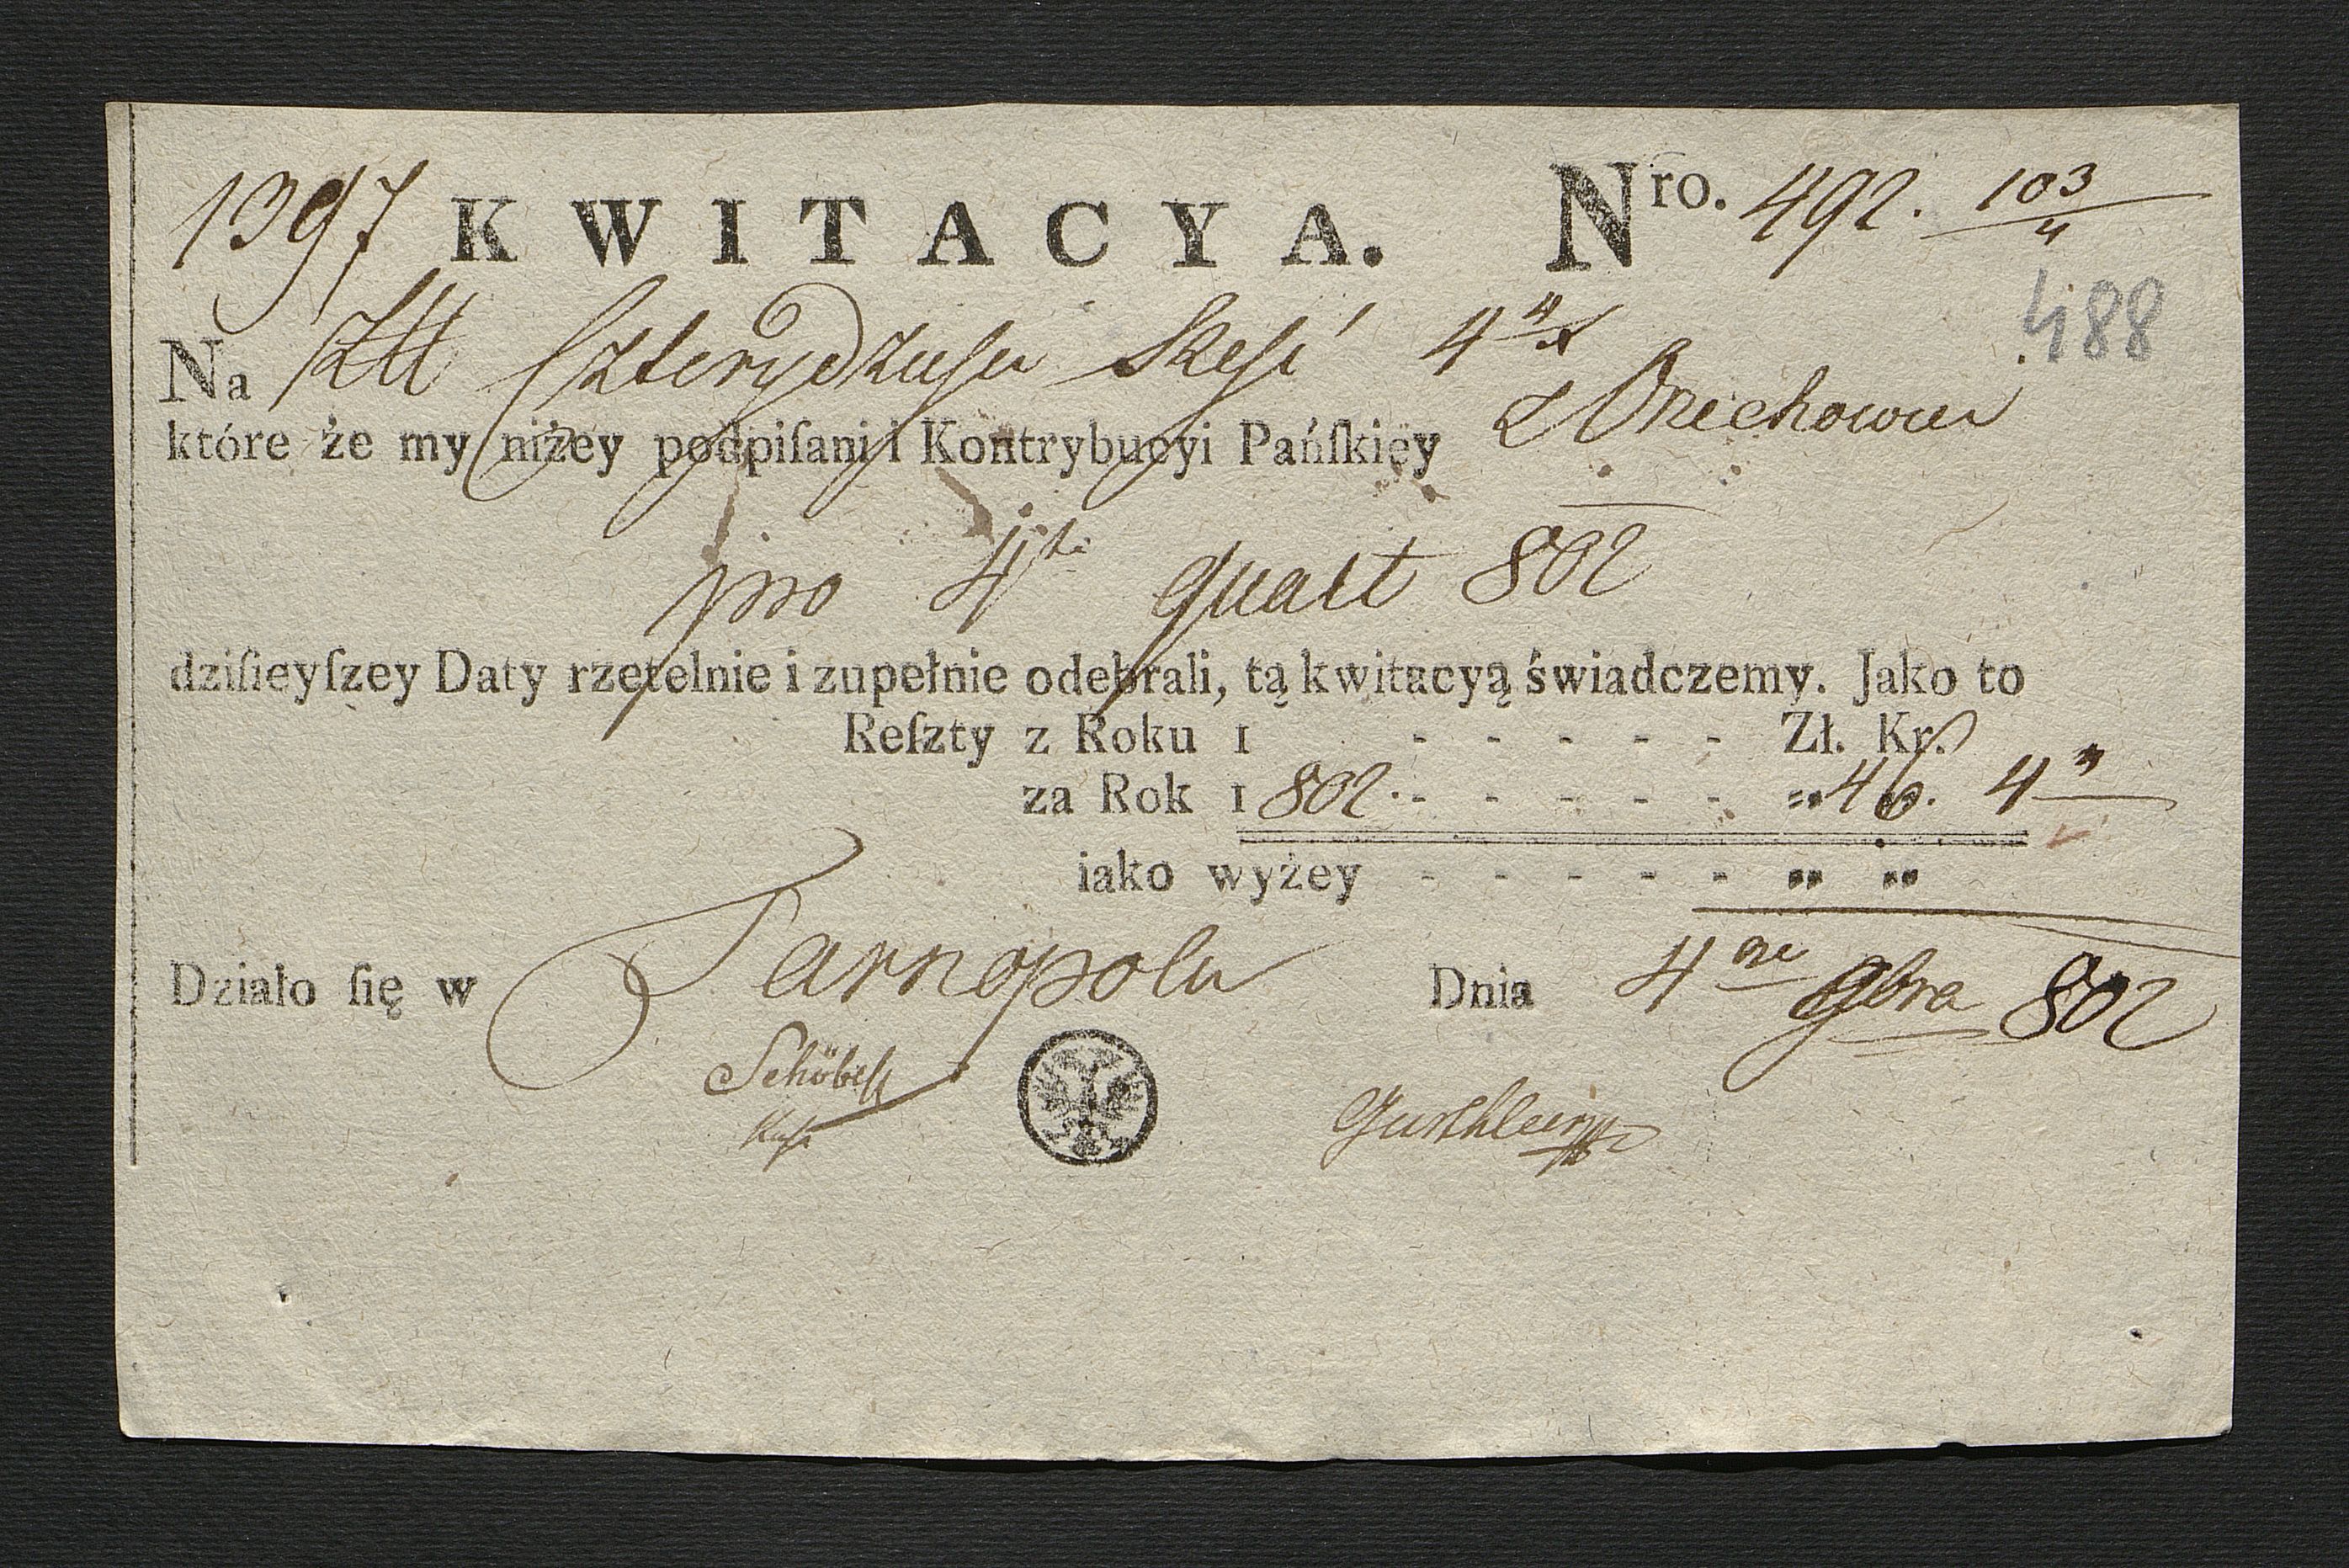 1397 KWITACYA. Nro. 492. 103/4
488
Na Złł Czterydzieści Sześć 4 x
które że my niżey podpiſani i Kontrybucyi Pańſkiey z Orzechowca
pro 4ta quart 802
dziſieyſzey Daty rzetelnie i zupełnie odebrali, tą kwitacyą świadczemy. Jako to
Reſzty z Roku 1 - - - - - Zł. Kr.
za Rok 1802. - - - - - „ 46. 4
iako wyżey - - - - - „ „
Działo ſię w Tarnopolu Dnia 4 9bra 802
Schöbel